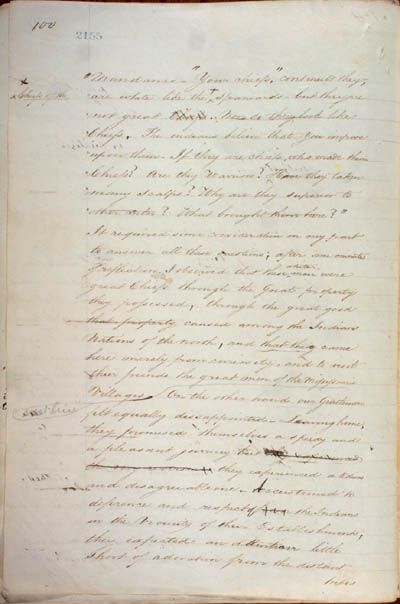 100
2155
"Mandanes "Your chiefs," continued they,
are white like the Spaniards but they are
not great Nor to they look like
Chiefs. The indians believe that you impose
upon them. If they are chiefs, who made them
Chiefs? Are they Warriors? Have they taken
many scalps? Why are they superior to
other white? What brought them here?"
It required some consideration on my part
to answer all these questions; after some minutes
of reflection I observed that these white men were
great Chiefs through the Great property
they possessed, through the great good
that property caused among the Indian
Nations of the north, and that they came
here merely from curiosity and to visit
their friends the great men of the Missisourie
Villages On the other hand our Gentlemen
felt equally disappointed. Leaving home,
they promised themselves a speedy and
a pleasant journey
they experienced a
and disagreeable one. Accustomed to
deference and respect the Indians
in the vicinity of their Establishments,
they expected an attention little
short of adoration from the distant